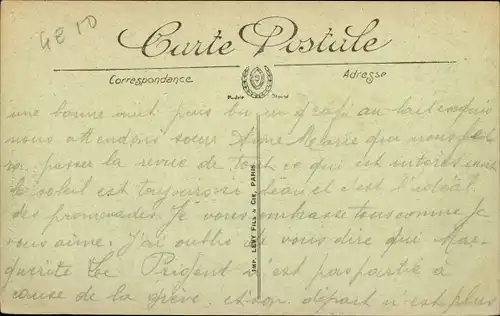 4810
Carte Postale
Correspondance
Adresse
Modèle Déposé
une bonne nuit puis bu un café au lait exquis
nous attendons sœur Anne Marie qui nous
passer la revue de tout ce qui est
le soleil est toujours si beau et c'est l'idéal
des promenades. Je vous embrasse tous comme je
vous aime. J'ai oublié de vous dire que Mar-
guerite Le Prigent n'est pas partie à
cause de la grève et son départ n'est plus
IMP. LEVY FILS & CIE, PARIS